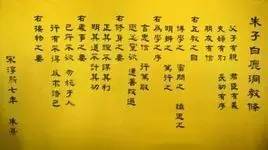 朱子白鹿洞教條
父子有親 君臣有義
夫婦有別 長幼有序
朋友有信
右五教之目
博學之 審問之 慎思之
明辨之 篤行之
右為學之序
言忠信 行篤敬
懲忿窒欲 遷善改過
右修身之要
正其誼不謀其利
明其道不計其功
右處事之要
己所不欲 勿施於人
行有不得 反求諸己
右接物之要
宋淳熙七年 朱熹